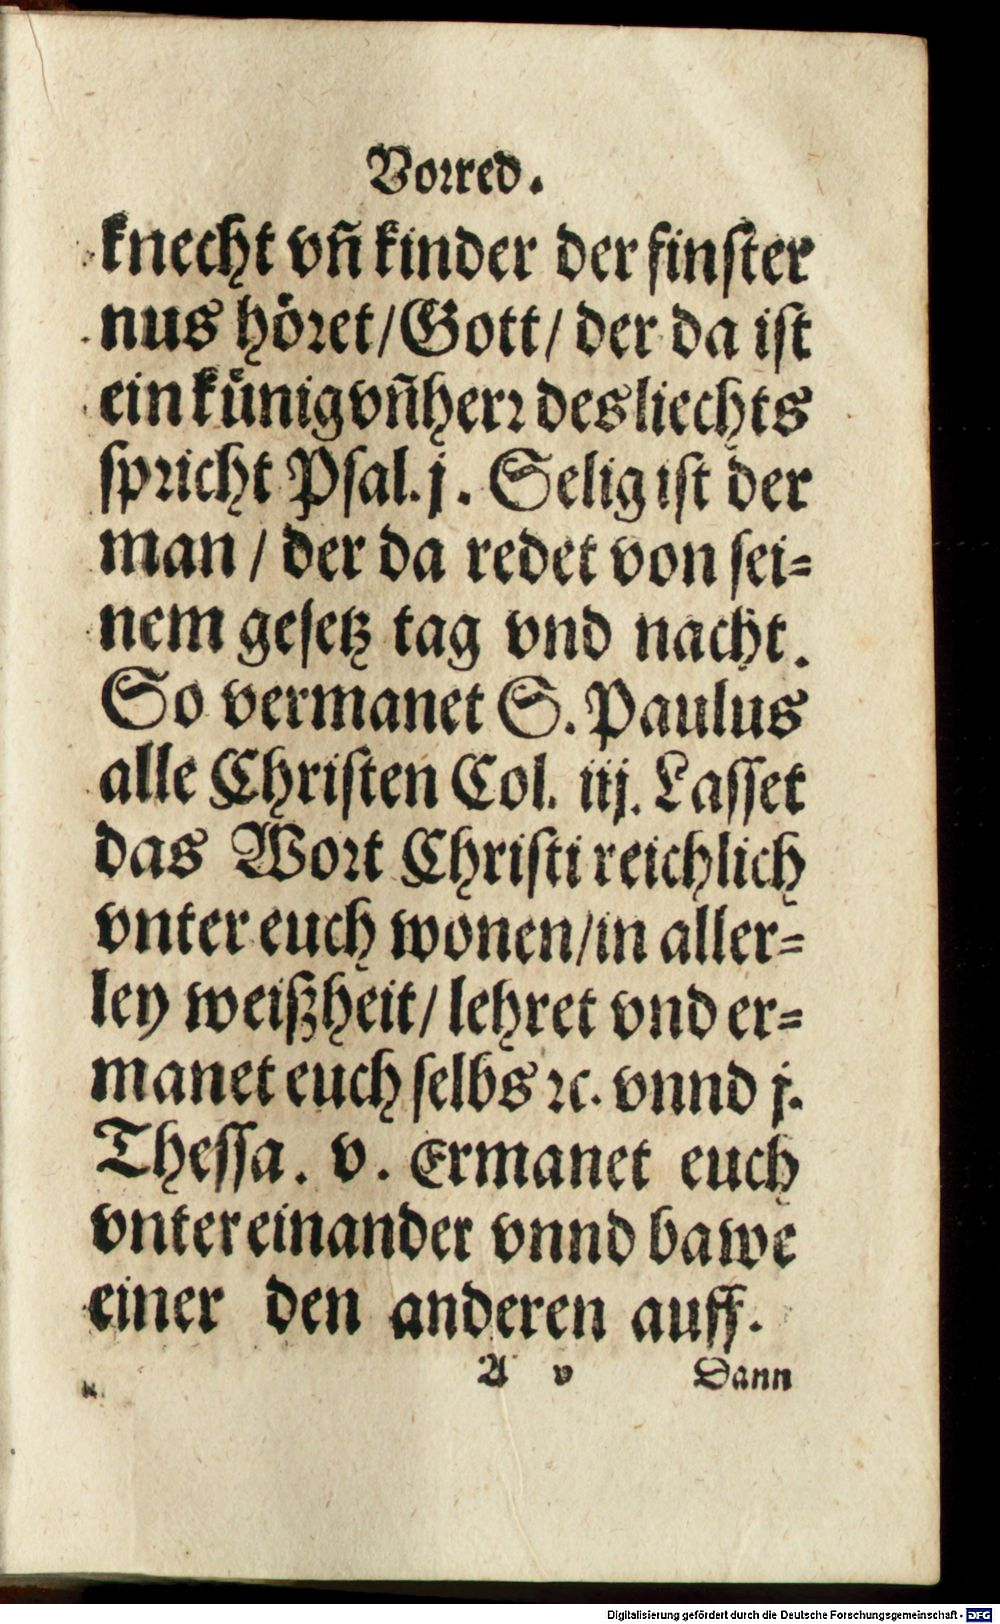 Vorred.
knecht vñ kinder der finster
nus höret/Gott/ der da ist
ein künig vñ herr des liechts
spricht Psal. j. Selig ist der
man / der da redet von sei-
nem gesetz tag vnd nacht.
So vermanet S. Paulus
alle Christen Col. iij. Lasset
das Wort Christi reichlich
vnter euch wonen/in aller-
ley weißheit/ lehret vnd er-
manet euch selbs ꝛc. vnnd j.
Thessa. v. Ermanet euch
vnter einander vnnd bawe
einer den anderen auff.
A v Dann
Digitalisierung gefördert durch die Deutsche Forschungsgemeinschaft - DFG